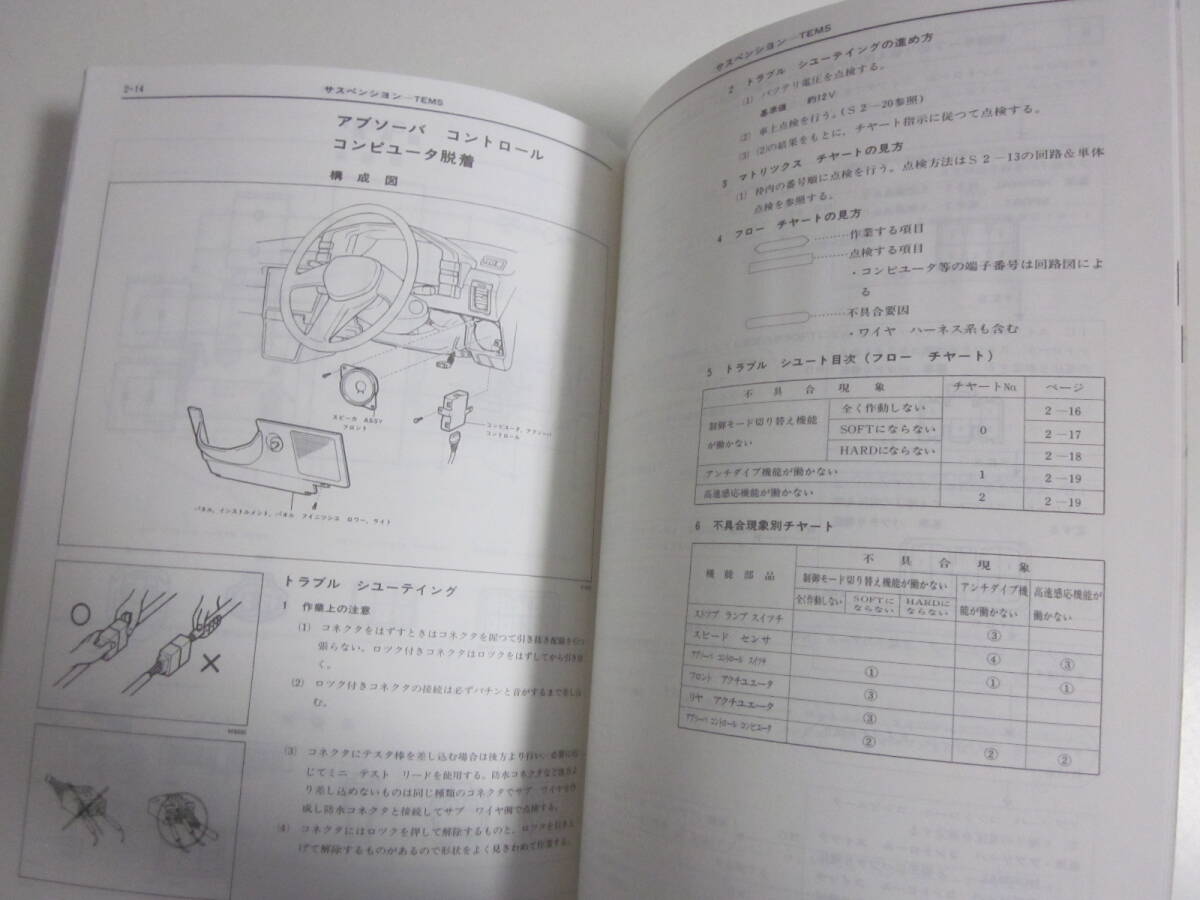 2-14
サスペンション―TEMS
アブソーバ コントロール
コンピユータ脱着
構成図
スピーカ ASSY
フロント
コンピユータ, アブソーバ
コントロール
パネル, インストルメント, パネル フイニツシユ ロワー, ライト
トラブル シユーテイング
1 作業上の注意
(1) コネクタをはずすときはコネクタを握つて引き抜き配線を引つ
張らない。ロツク付きコネクタはロツクをはずしてから引き抜
く。
(2) ロツク付きコネクタの接続は必ずパチンと音がするまで差し込
む。
(3) コネクタにテスタ棒を差し込む場合は後方より行い、必要に応
じてミニ テスト リードを使用する。防水コネクタなど後方よ
り差し込めないものは同じ種類のコネクタでサブ ワイヤを作
成し防水コネクタと接続してサブ ワイヤ側で点検する。
(4) コネクタにはロツクを押して解除するものと、ロツクを引き上
げて解除するものがあるので形状をよく見きわめて作業する。
サスペンシヨン―TEMS
2 トラブル シユーテイングの進め方
(1) バツテリ電圧を点検する。
基準値 約12V
(2) 車上点検を行う。(S2―20参照)
(3) (2)の結果をもとに、チヤート指示に従つて点検する。
3 マトリツクス チヤートの見方
(1) 枠内の番号順に点検を行う。点検方法はS2―13の回路&単体
点検を参照する。
4 フロー チヤートの見方
………作業する項目
………点検する項目
・コンピユータ等の端子番号は回路図によ
る
………不具合要因
・ワイヤ ハーネス系も含む
5 トラブル シユート目次(フロー チヤート)
不具合現象 チヤートNo. ページ
制御モード切り替え機能
が働かない
全く作動しない 0 2―16
SOFTにならない 2―17
HARDにならない 2―18
アンチダイブ機能が働かない 1 2―19
高速感応機能が働かない 2 2―19
6 不具合現象別チヤート
機能部品 不具合現象
制御モード切り替え機能が働かない アンチダイブ機
能が働かない 高速感応機能が
働かない
全く作動しない SOFTに
ならない HARDに
ならない
ストツプ ランプ スイツチ ③
スピード センサ ④ ③
アブソーバ コントロール スイツチ ① ① ①
フロント アクチユエータ ③
リヤ アクチユエータ ③
アブソーバ コントロール コンピユータ ② ② ②